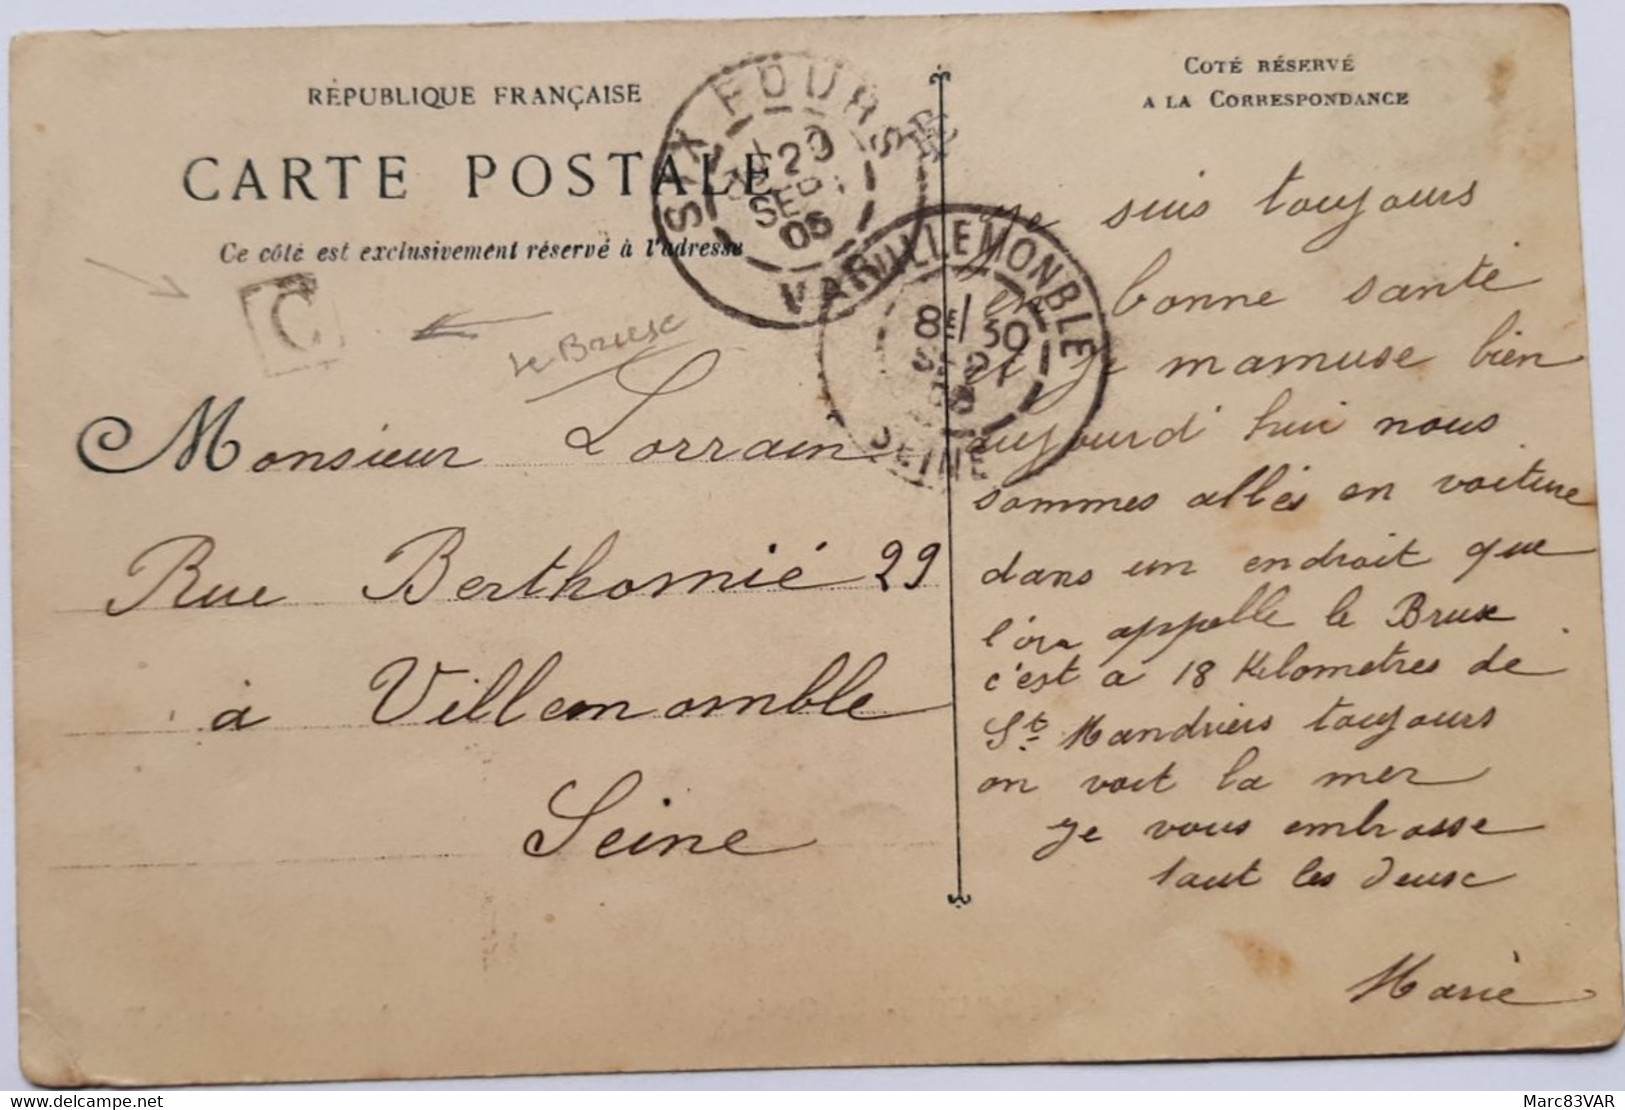 RÉPUBLIQUE FRANÇAISE
CARTE POSTALE
Ce côté est exclusivement réservé à l'adresse
C
le Brusc
SIX FOURS
20
SEPT
05
VAR
VILLEMONBLE
8E/30
SEINE
Monsieur Lorrain
Rue Berthomié 29
à Villemomble
Seine
COTÉ RÉSERVÉ
A LA CORRESPONDANCE
Je suis toujours
en bonne santé
et je mamuse bien
aujourd'hui nous
sommes allés en voiture
dans un endroit que
l'on appelle le Brux
c'est a 18 Kilometres de
St Mandriers toujours
on voit la mer
Je vous embrasse
tout les deux
Marie
Marc83VAR
delcampe.net